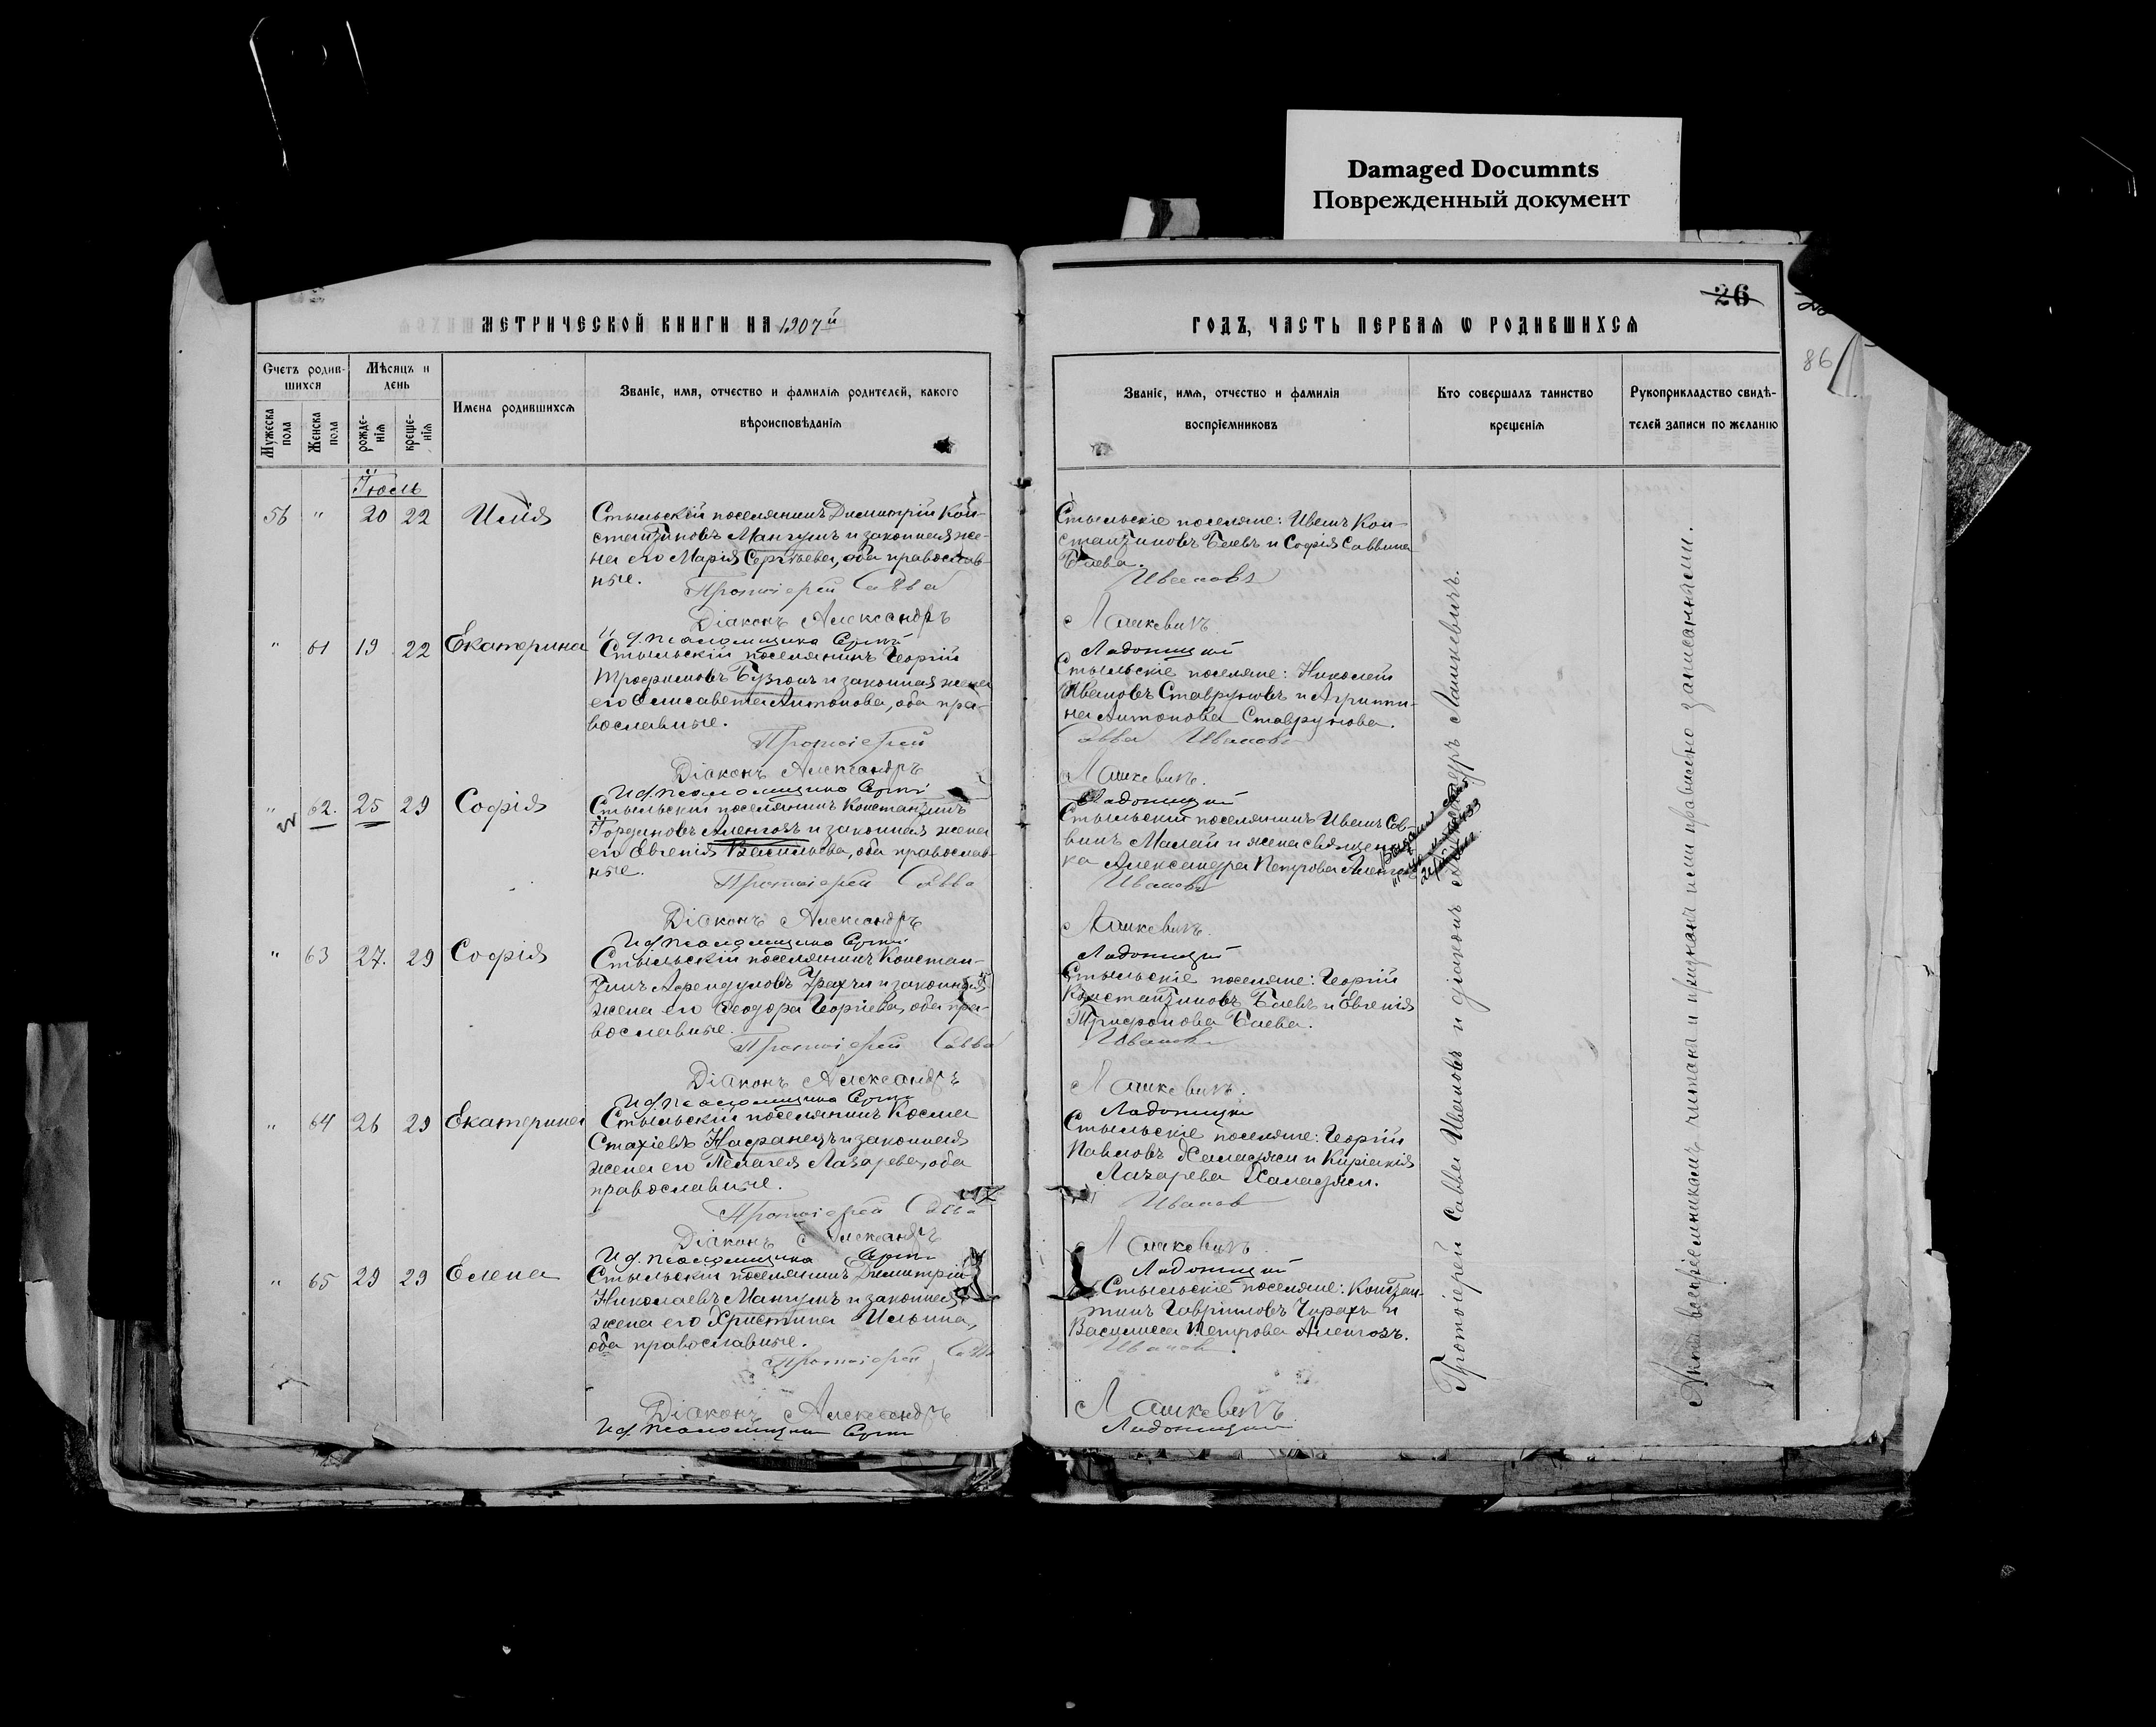 Damaged Documnts
Поврежденный документ
26
86
МЕТРИЧЕСКОЙ КНИГИ НА 1907й
ГОДЪ, ЧАСТЬ ПЕРВАЯ Ѡ РОДИВШИХСЯ
Счетъ родив-
шихся
Мѣсяцъ и
день
Мужеска
пола
Женска
пола
рожде-
нія
креще-
нія
Имена родившихся
Званіе, имя, отчество и фамилія родителей, какого
вѣроисповѣданія
Званіе, имя, отчество и фамилія
воспріемниковъ
Кто совершалъ таинство
крещенія
Рукоприкладство свидѣ-
телей записи по желанію
Іюль
56 " 20 22 Илія
Стыльскій поселянинъ Димитрій Кон-
стантиновъ Мангушъ и законная же-
на его Марія Сергѣева, оба православ-
ные.
Протоіерей Савва
Діаконъ Александръ
И. д. псаломщика
Стыльскіе поселяне: Иванъ Кон-
стантиновъ Баевъ и Софія Саввина
Баева.
Ивановъ
Лашкевичъ.
Ладоницкій
" 61 19 22 Екатерина
Стыльскій поселянинъ Георгій
Трофимовъ и законная жена
его Елисавета Антонова, оба пра-
вославные.
Протоіерей
Діаконъ Александръ
И. д. псаломщика
Стыльскіе поселяне: Николай
Ивановъ и Агриппи-
на Антонова
Савва Ивановъ
Лашкевичъ.
Ладоницкій
" 62. 25 29 Софія
Стыльскій поселянинъ Константинъ
Алентозъ и законная жена
его Евгенія Васильева, оба православ-
ные.
Протоіерей Савва
Діаконъ Александръ
И. д. псаломщика
Стыльскій поселянинъ Иванъ Сав-
винъ Малай и жена священни-
ка Александра Петрова
Ивановъ
Лашкевичъ.
Ладоницкій
" 63 27. 29 Софія
Стыльскій поселянинъ Констан-
тинъ и законная
жена его Ѳеодора Георгіева, оба пра-
вославные.
Протоіерей Савва
Діаконъ Александръ
И. д. псаломщика
Стыльскіе поселяне: Георгій
Константиновъ Баевъ и Евгенія
Трифонова Баева.
Ивановъ
Лашкевичъ.
Ладоницкій
" 64 26 29 Екатерина
Стыльскій поселянинъ Косма
Стахіевъ и законная
жена его Пелагея Лазарева, оба
православные.
Протоіерей Савва
Діаконъ Александръ
И. д. псаломщика
Стыльскіе поселяне: Георгій
Павловъ Халаджи и Киріакія
Лазарева Халаджи.
Ивановъ
Лашкевичъ.
Ладоницкій
" 65 29 29 Елена
Стыльскій поселянинъ Димитрій
Николаевъ Мангушъ и законная
жена его Христина Ильина,
оба православные.
Протоіерей Савва
Діаконъ Александръ
И. д. псаломщика
Стыльскіе поселяне: Констан-
тинъ Гавріиловъ Чирахъ и
Василиса Петрова Алентозъ.
Ивановъ
Лашкевичъ.
Ладоницкій
Протоіерей Савва Ивановъ и діаконъ Александръ Лашкевичъ.
воспріемникамъ читаны и признаны ими правильно записанными.